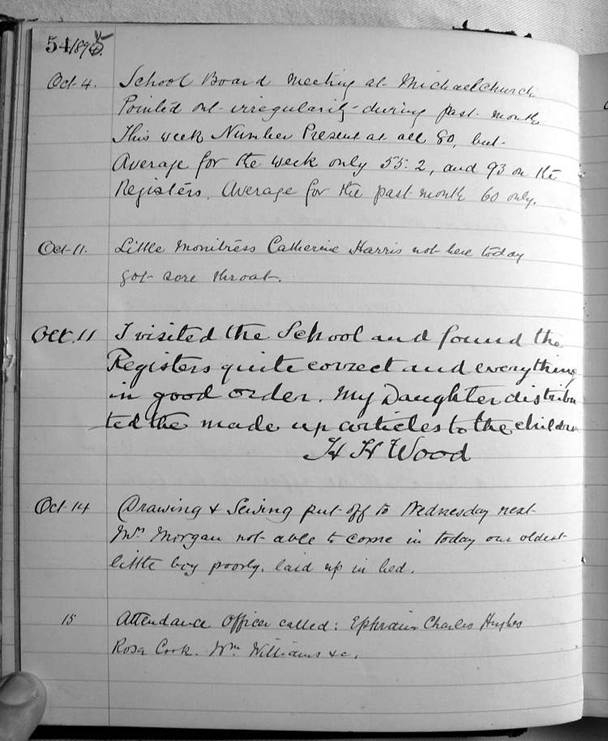 54 1895
Oct. 4. School Board Meeting at Michaelchurch
Pointed out irregularity during past month
This week Number Present at all 80, but
Average for the week only 55.2, and 93 on the
Registers. Average for the past month 60 only.
Oct. 11. Little Monitress Catherine Harris not here today
got sore throat.
Oct. 11 I visited the School and found the
Registers quite correct and everything
in good order. My Daughter distribu
ted the made up articles to the children
H H Wood
Oct 14 Drawing & Sewing put off to Wednesday next
Mrs Morgan not able to come in today our oldest
little boy poorly. laid up in bed.
15 Attendance Officer called: Ephraim Charles Hughes
Rosa Cook. Wm Williams &c.